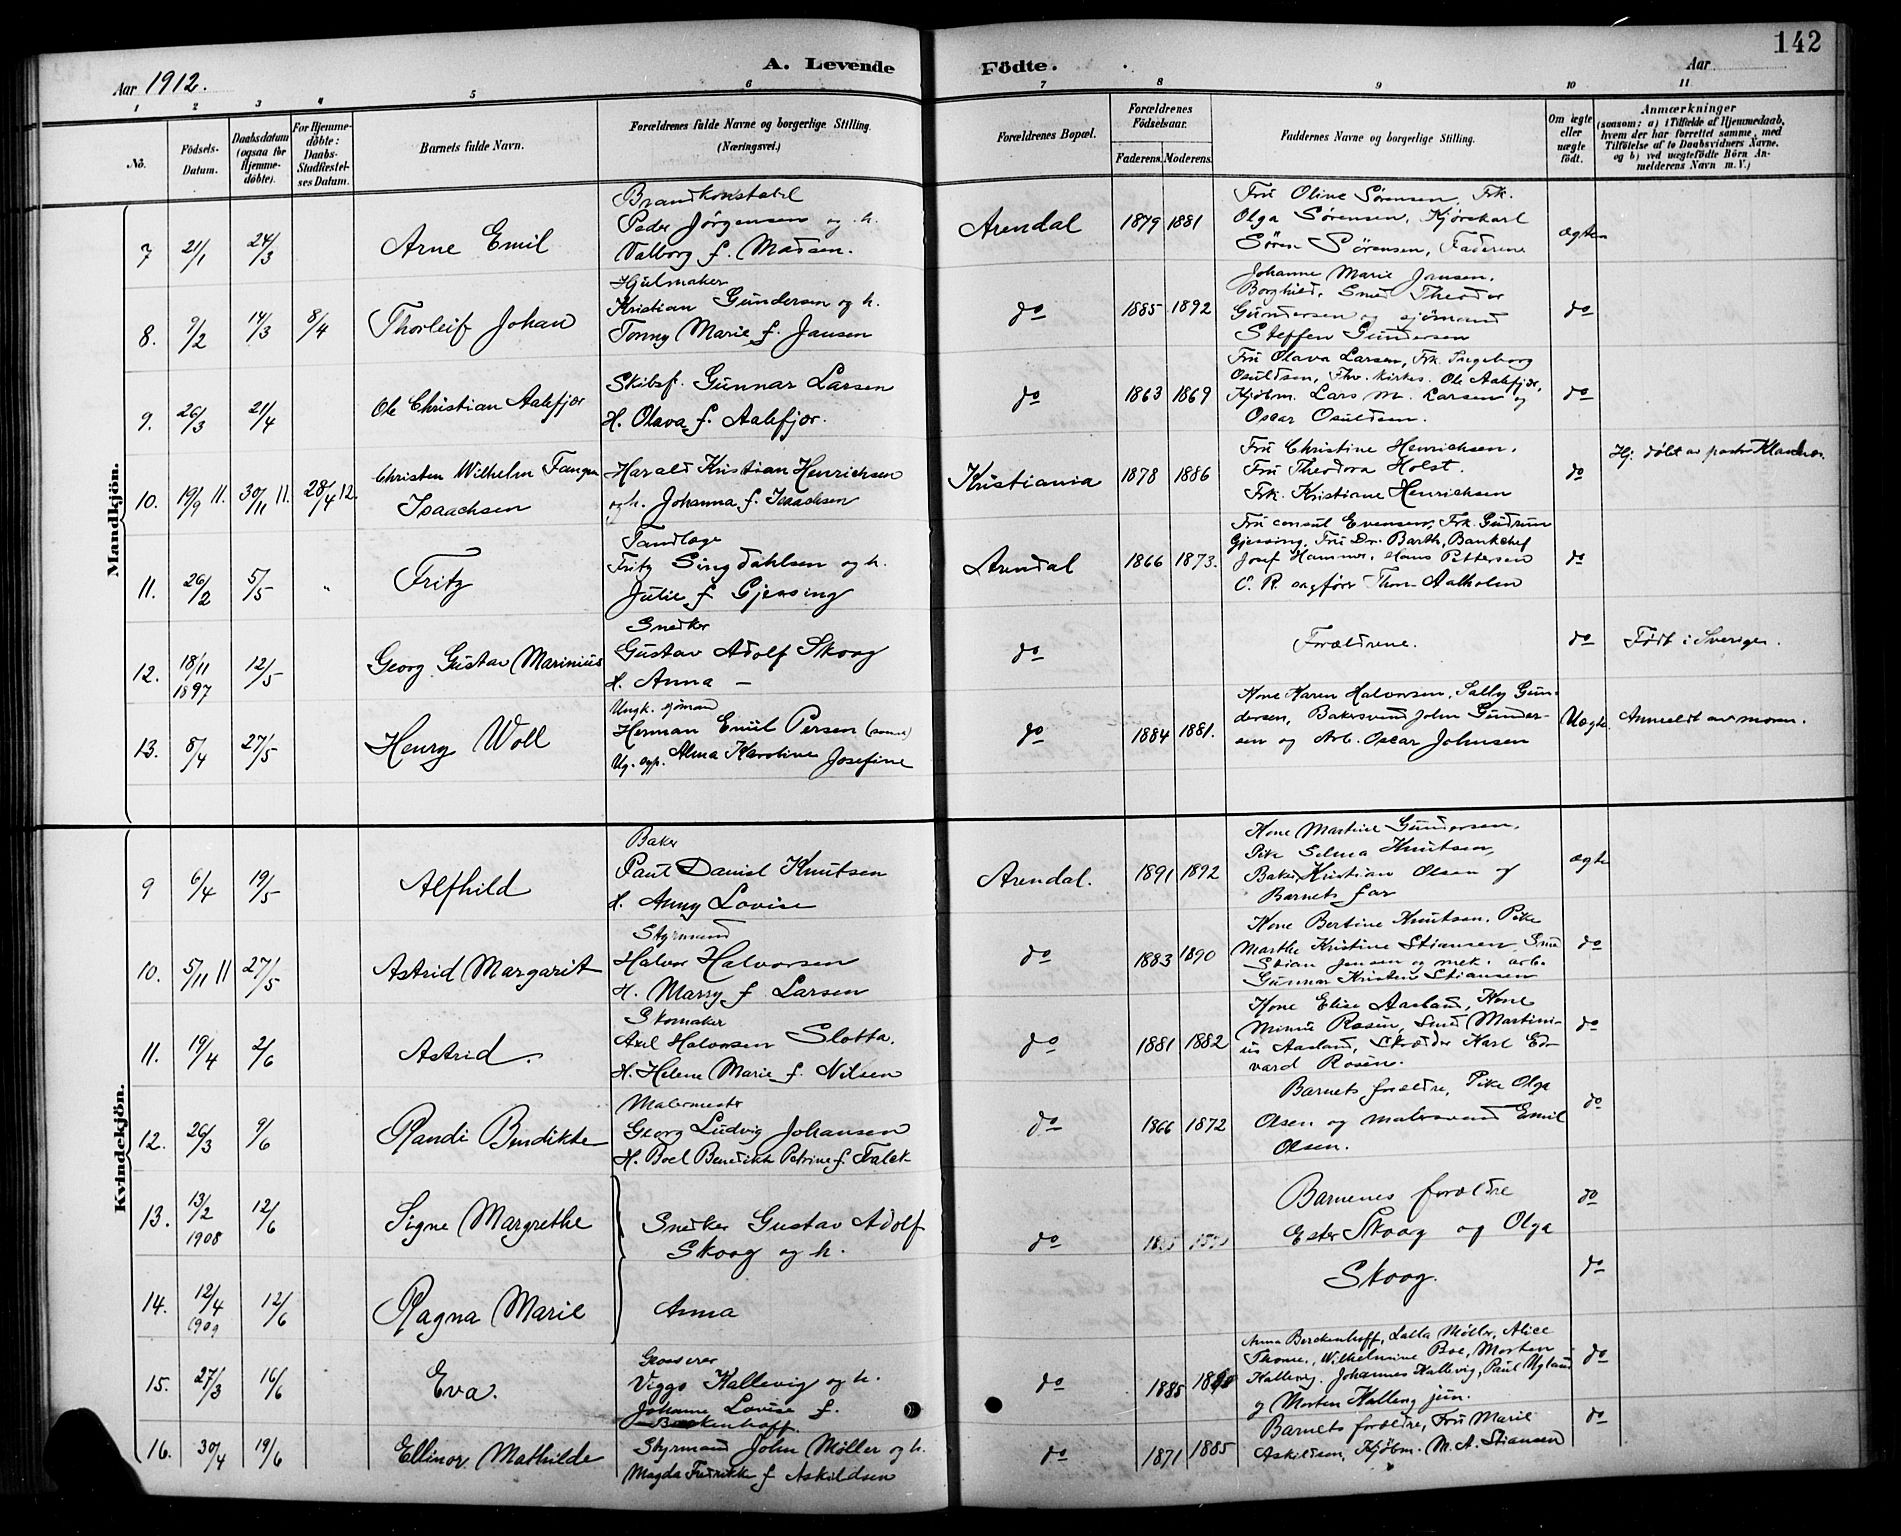 142
Aar 1912.
A. Levende
Födte.
Aar
1 2 3 4 5 6 7 8 9 10 11
No.
Födsels-Datum.
Daabsdatum (ogsaa for Hjemme-döbte).
For Hjemme-döbte: Daabs-Stadfæstel-ses Datum.
Barnets fulde Navn.
Forældrenes fulde Navne og borgerlige Stilling. (Næringsvei.)
Forældrenes Bopæl.
Forældrenes Födselsaar.
Faderens. Moderens.
Faddernes Navne og borgerlige Stilling.
Om ægte eller uægte födt.
Anmærkninger
(saasom: a) i Tilfælde af Hjemmedaab, hvem der har forrettet samme, med Tilföielse af to Daabsvidners Navne, og b) ved uægtefödte Börn An-melderens Navn m. V.)
Mandkjön.
7 21/1 24/3 Arne Emil
Brandkonstabel
Peder Jörgensen og h.
Valborg f. Madsen.
Arendal 1879 1881
Fru Oline Sørensen, Frk.
Olga Sørensen, Kjørekarl
Søren Sørensen, Faderene
ægte
8. 9/2 14/3 8/4 Thorleif Johan
Hjulmaker
Kristian Gundersen og h.
Tonny Marie f. Jansen
do 1885 1892
Johanne Marie Jansen,
Borghild, Smed Theodor
Gundersen og sjömand
Steffen Gundersen
do
9. 26/3 21/4 Ole Christian Aalefjær
Skibsf. Gunnar Larsen
H. Olava f. Aalefjær.
do 1863 1869
Fru Olava Larsen, Frk. Ingeborg
Osuldsen, Ole Aalefjær,
Kjöbm. Lars M. Larsen og
Oscar Osuldsen.
do
10. 19/9 11. 30/11 11. 28/4 12 Christen Wilhelm Fangen
Isaachsen
Harald Kristian Henrichsen
og h. Johanna f. Isaachsen
Kristiania 1878 1886
Fru Christine Henrichsen,
Fru Theodora Holst.
Frk. Kristiane Henrichsen
do
Hj. döbt av pastor
11. 26/2 5/5 " Fritz
Tandlæge
Fritz Sing dahlsen og h.
Julie f Gjessing
Arendal 1866 1873.
Fru consul Evensen, Frk. Gudrun
Gjessing, Fru Dr. Barth, Bankchef
Josef Hammer, Hans Pettersen
O. R. sagförer Thom Aalholm
do
12. 18/11 1897 12/5 Georg Gustav Marinius
Snedker
Gustav Adolf Skoog
H. Anna —
do
Forældrene.
do
Født i Sverige.
13. 8/4 27/5 Henry Woll
Ungk. sjömand
Herman Emil Persen
Ug. Alma Karoline Josefine
do 1884 1881.
Kone Karen Halvorsen, Sally Gun-
dersen, Bakersvend John Gunder-
sen og Arb. Oscar Johnsen
Uægte
Anmeldt av moren.
Kvindekjön.
9 6/4 19/5 Alfhild
Baker
Paul Daniel Knutsen
H. Anny Lovise
Arendal. 1891 1892
Kone Martine Gundersen,
Pike Selma Knutsen,
Baker Kristian Olsen og
Barnets far
ægte
10. 5/11 11 27/5 Astrid Margarit
Styrmand
Halvor Halvorsen
H. Marry f Larsen
do 1883 1890
Kone Bertine Knutsen, Pike
Marthe Kristine Stiansen, Smed
Stian Jensen og mek. arb.
Gunnar Kristen Stiansen
do
11. 19/4 2/6 Astrid.
Skomaker
Axel Halvorsen Slotta.
H. Helene Marie f. Nilsen
do 1881 1882
Kone Elise Aasland, Kone
Minni Rosén, Smed Martini-
us Aasland, Skrædder Karl Ed-
vard Rosén.
do
12. 26/3 9/6 Randi Bendikte
Malermester
Georg Ludvig Johansen
H. Boel Benedikte Petrine f. Falck
do 1866 1872
Barnets forældre, Pike Olga
Olsen og malersvend Emil
Olsen.
do
13. 13/2 1908 12/6 Signe Margrethe
Snedker Gustav Adolf
Skoog og h.
do
Barnenes forældre
Ester Skoog og Olga
Skoog.
do
14. 12/4 1909 12/6 Ragna Marie
Anna
do
15. 27/3 16/6 Eva.
Grosserer
Viggo Kallevig og h.
Johanne Lovise f.
Berckenhoff
do 1885
Anna Berckenhoff, Lalla Møller, Alice
Thome, Wilhelmine Boe, Morten
Kallevig, Johannes Kallevig, Paul Ugland
og Morten Kallevig jun.
do
16. 30/4 19/6 Ellinor Mathilde
Styrmand John Møller og h.
Magda Fredrikke f Askildsen
do 1871 1885
Barnets forældre, Fru Marie
Askildsen, Kjöbm. M. A. Stiansen
do